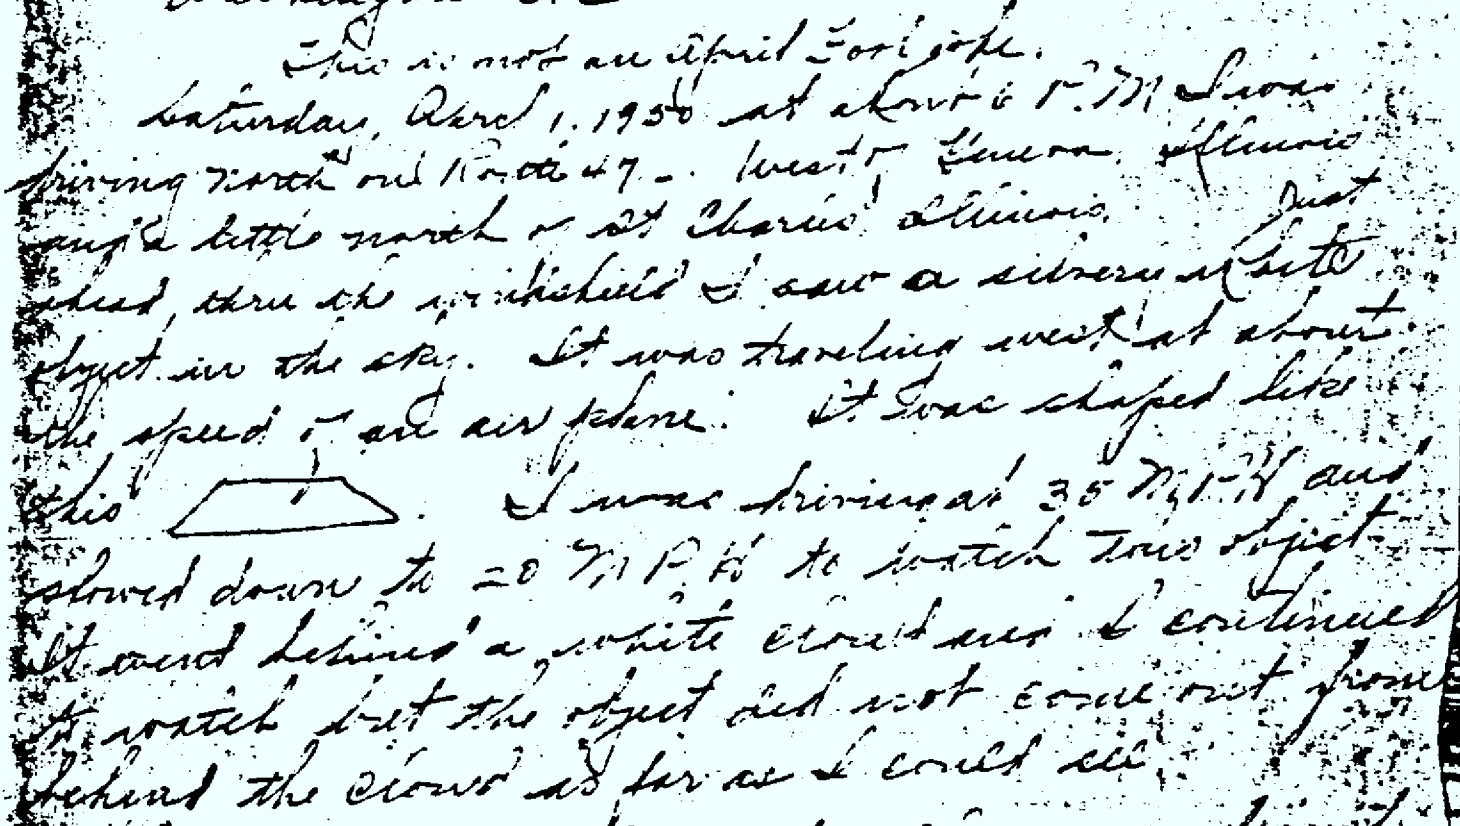 Washington DC
This is not an April Fool joke.
Saturday, April 1, 1950 at about 6 P.M I was
driving north on Route 47 - West of Geneva, Illinois
and a little north of St Charles Illinois. Just
ahead, thru the windshield I saw a silvery white
object in the sky. It was traveling west at about
the speed of an air plane. It was shaped like
this . I was driving at 35 M.P.H and
slowed down to 20 M P H to watch this object
It went behind a white cloud and I continued
to watch but the object did not come out from
behind the cloud as far as I could see.